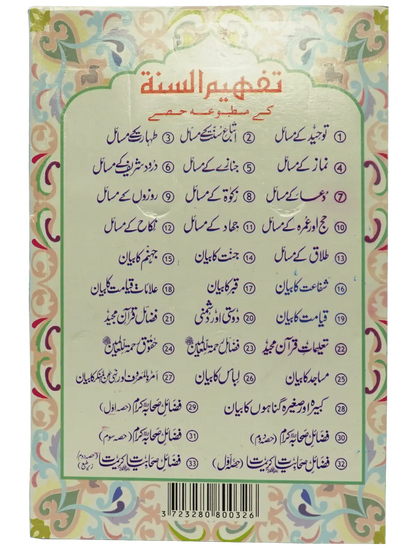 تفہیم السنۃ
کے مطبوعہ حصے
① توحید کے مسائل ② اتباع سنت کے مسائل ③ طہارت کے مسائل
④ نماز کے مسائل ⑤ جنازے کے مسائل ⑥ درود شریف کے مسائل
⑦ دعا کے مسائل ⑧ زکوٰۃ کے مسائل ⑨ روزوں کے مسائل
⑩ حج اور عمرہ کے مسائل ⑪ جہاد کے مسائل ⑫ نکاح کے مسائل
⑬ طلاق کے مسائل ⑭ جنت کا بیان ⑮ جہنم کا بیان
⑯ شفاعت کا بیان ⑰ قبر کا بیان ⑱ علامات قیامت کا بیان
⑲ قیامت کا بیان ⑳ دوستی اور دشمنی ㉑ فضائل قرآن مجید
㉒ تعلیمات قرآن مجید ㉓ فضائل رحمۃ للعالمین ﷺ ㉔ حقوق رحمۃ للعالمین ﷺ
㉕ مساجد کا بیان ㉖ لباس کا بیان ㉗ امر بالمعروف اور نہی عن المنکر کا بیان
㉘ کبیرہ اور صغیرہ گناہوں کا بیان ㉙ فضائل صحابہ کرام (حصہ اول)
㉚ فضائل صحابہ کرام (حصہ دوم) ㉛ فضائل صحابہ کرام (حصہ سوم)
㉜ فضائل صحابیات (حصہ اول) ㉝ فضائل صحابیات
3723280800326